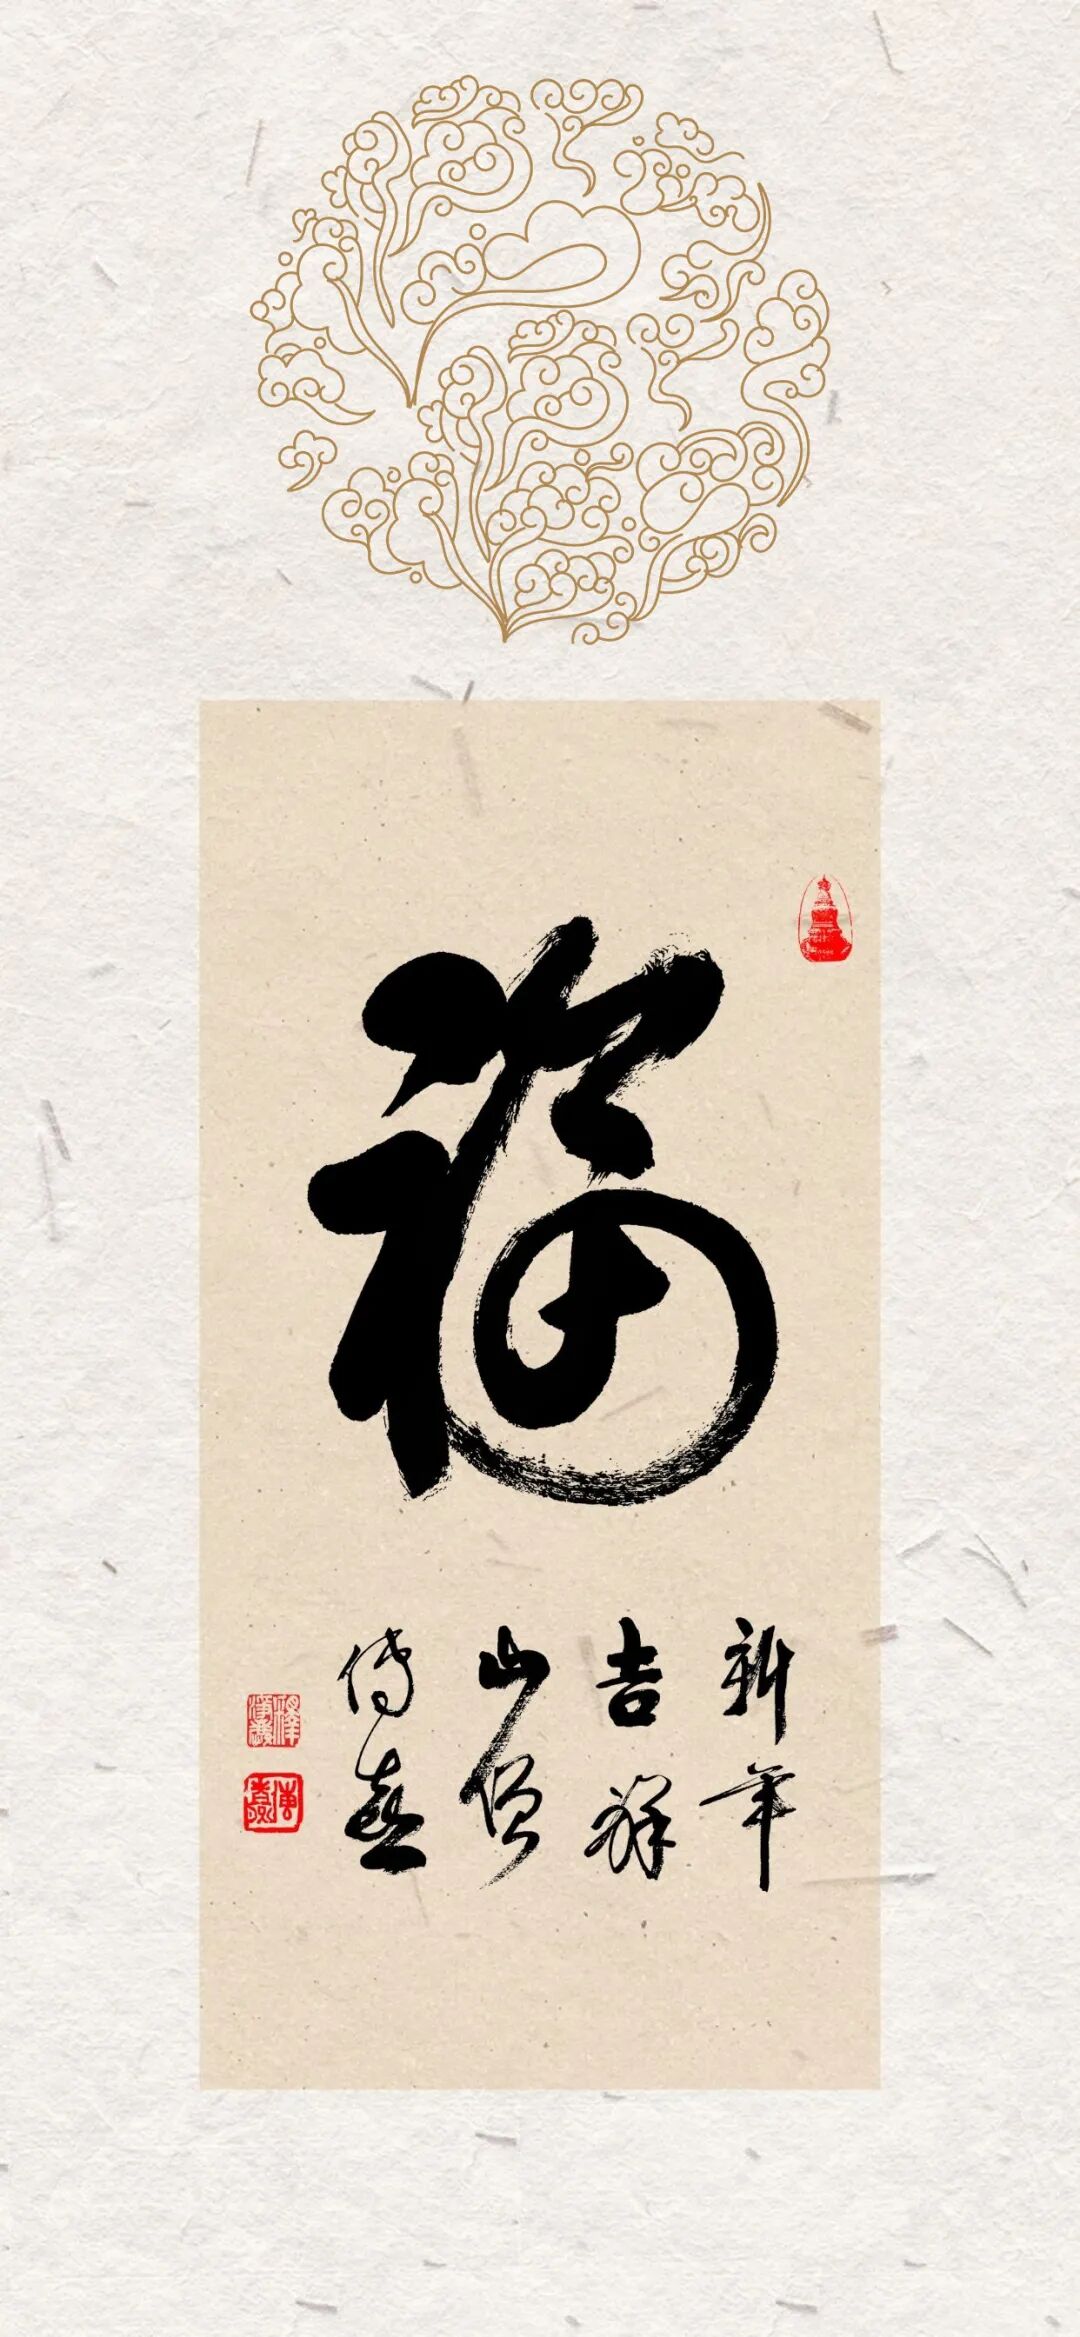 福
新年
吉祥
山僧
传喜